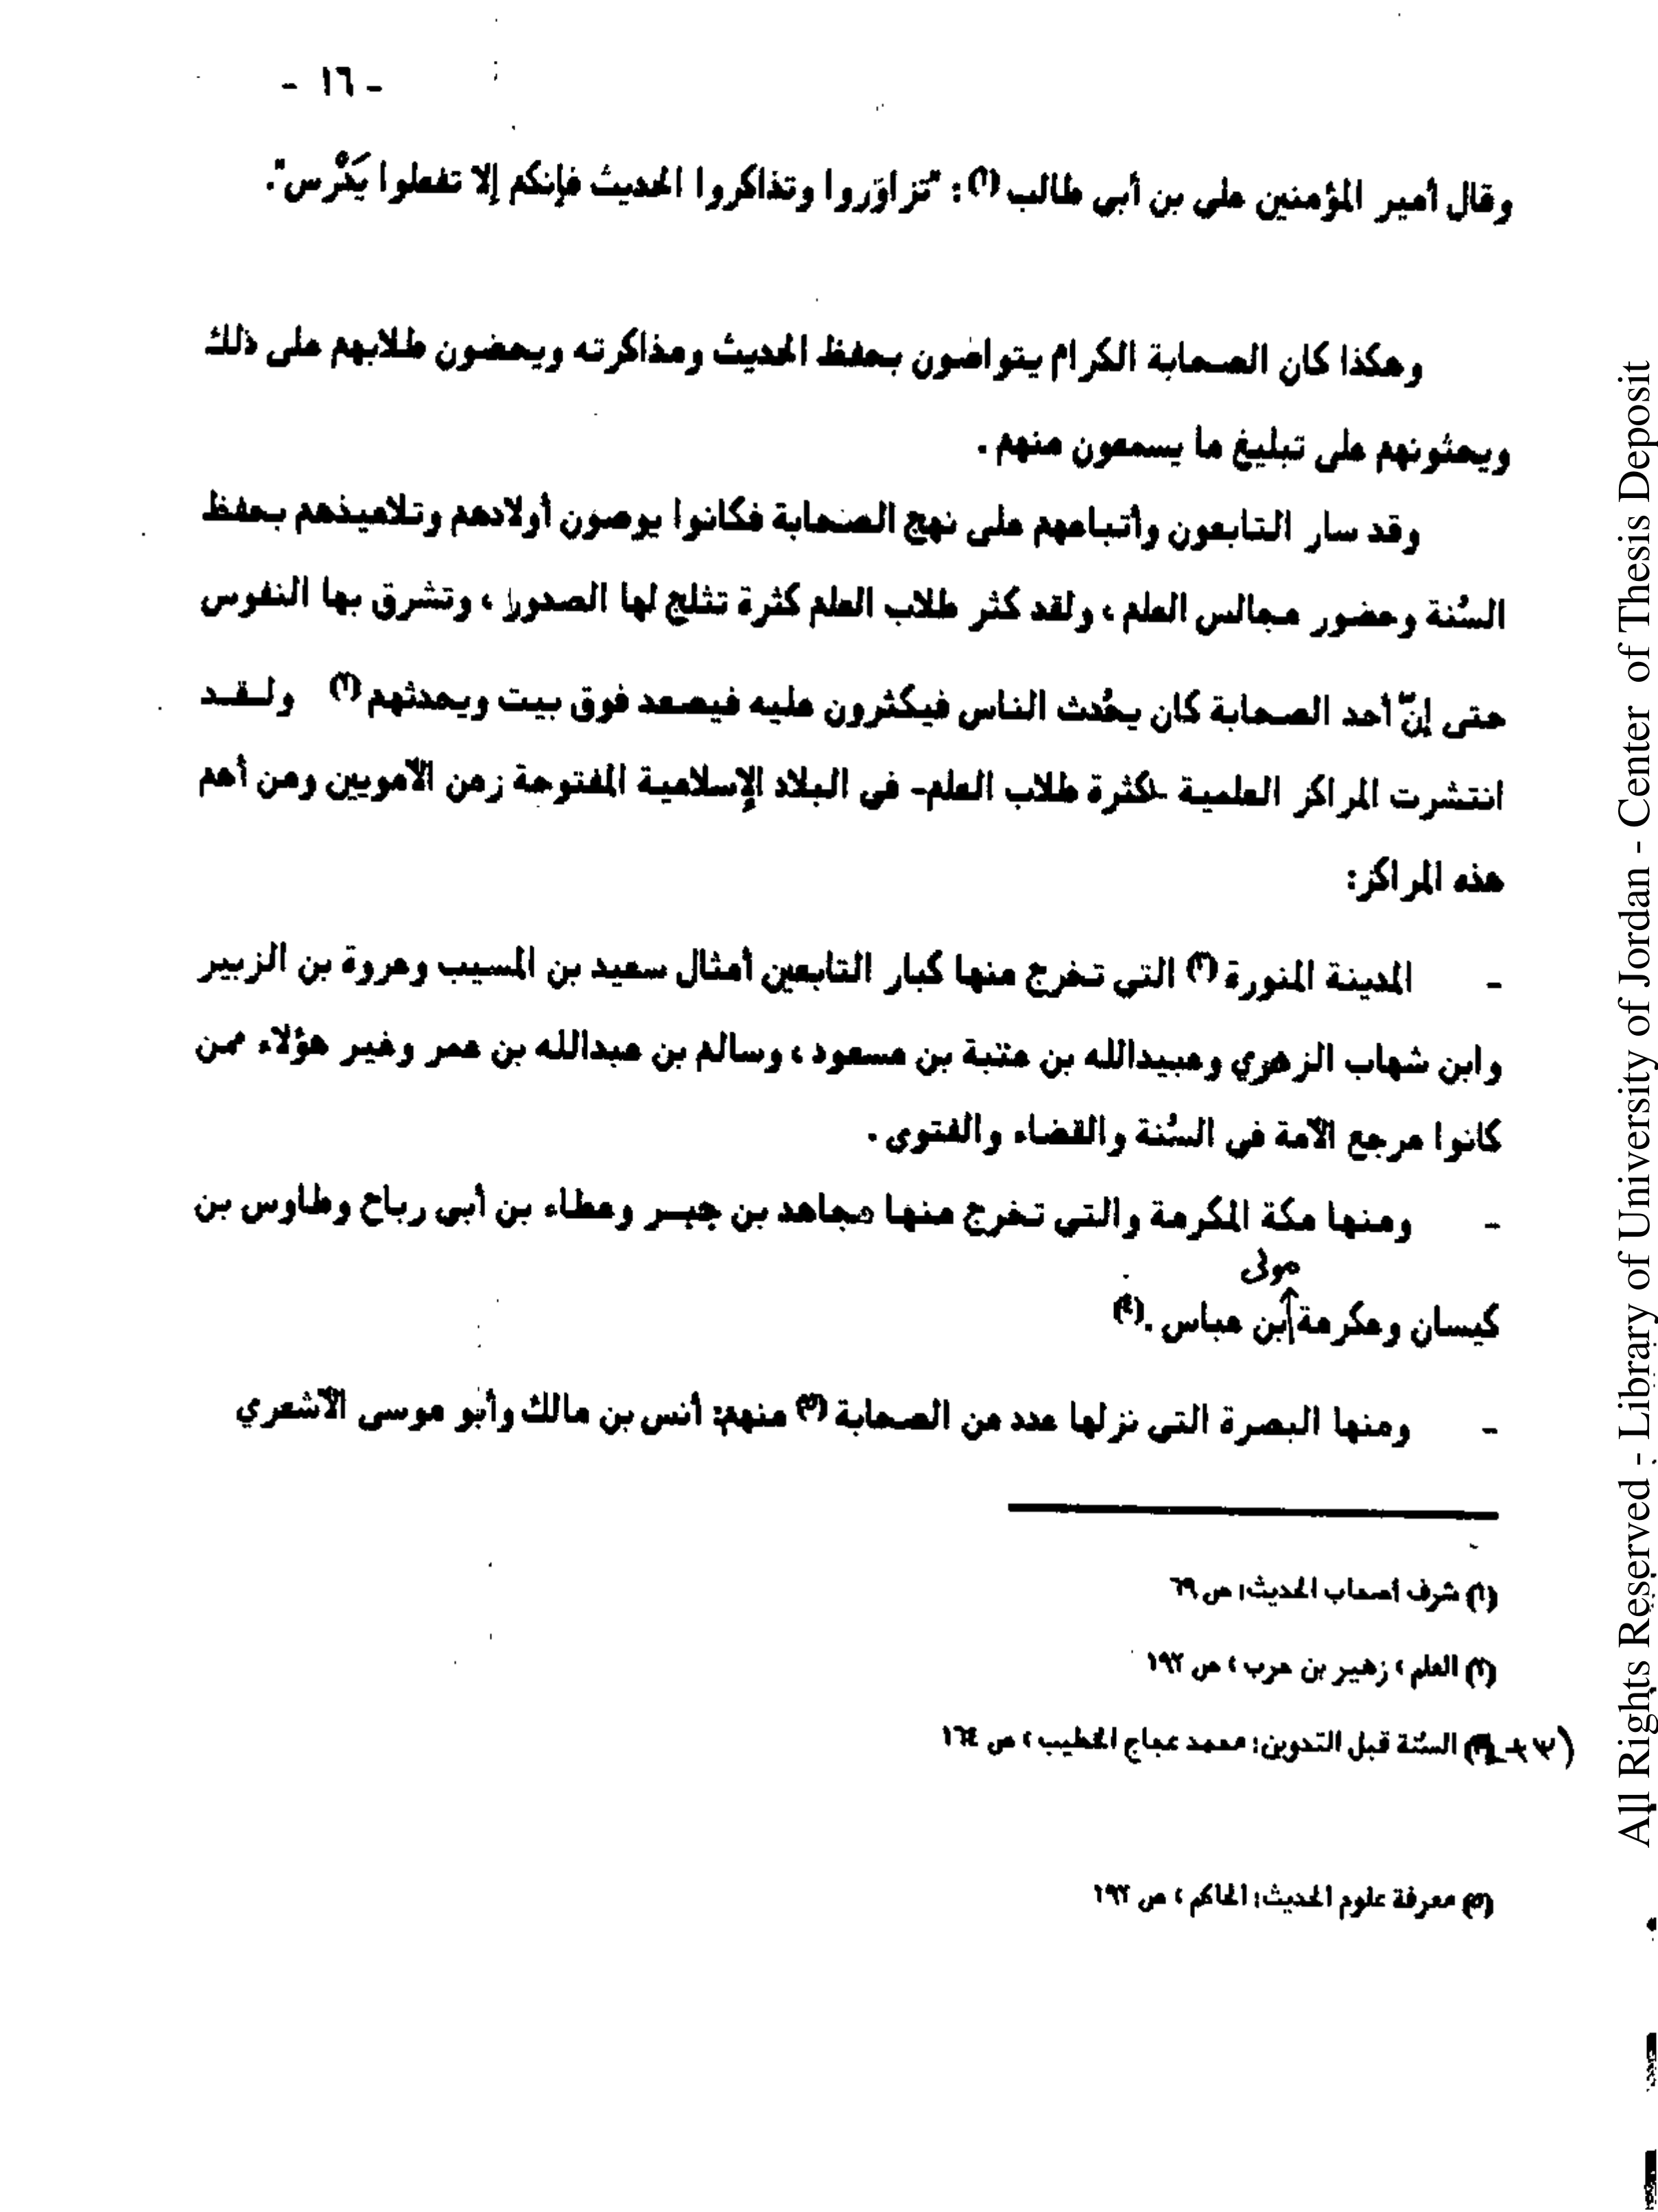 - ١٦ -
وقال أمير المؤمنين علي بن أبي طالب (١): "تزاوَروا وتذاكروا الحديث فإنكم إلا تفعلوا يَدْرس".
وهكذا كان الصحابة الكرام يتواصون بحفظ الحديث ومذاكرته ويحضون طلابهم على ذلك
ويحثونهم على تبليغ ما يسمعون منهم .
وقد سار التابعون وأتباعهم على نهج الصحابة فكانوا يوصون أولادهم وتلاميذهم بحفظ
السُنة وحضور مجالس العلم ، ولقد كثر طلاب العلم كثرة تثلج لها الصدور ، وتشرق بها النفوس
حتى إنّ أحد الصحابة كان يحُدث الناس فيكثرون عليه فيصعد فوق بيت ويحدثهم (٢) ولـقـد
انتشرت المراكز العلمية -لكثرة طلاب العلم- في البلاد الإسلامية المفتوحة زمن الأمويين ومن أهم
هذه المراكز:
- المدينة المنورة (٣) التي تخرج منها كبار التابعين أمثال سعيد بن المسيب وعروة بن الزبير
وابن شهاب الزهري وعبيدالله بن عتبة بن مسعود ، وسالم بن عبدالله بن عمر وغير هؤلاء ممن
كانوا مرجع الأمة في السُنة والقضاء والفتوى .
- ومنها مكة المكرمة والتي تخرج منها مجاهد بن جبـر وعطاء بن أبي رباح وطاوس بن
مولى
كيسان وعكرمة ابن عباس .(٤)
- ومنها البصرة التي نزلها عدد من الصحابة (٥) منهم: أنس بن مالك وأبو موسى الأشعري
(١) شرف أصحاب الحديث: ص ٦٩
(٢) العلم ، زهير بن حرب ، ص ١٩٢
(٣+٤) السُنة قبل التدوين: محمد عجاج الخطيب ، ص ١٦٤
(٥) معرفة علوم الحديث: الحاكم ، ص ١٩٢
All Rights Reserved - Library of University of Jordan - Center of Thesis Deposit